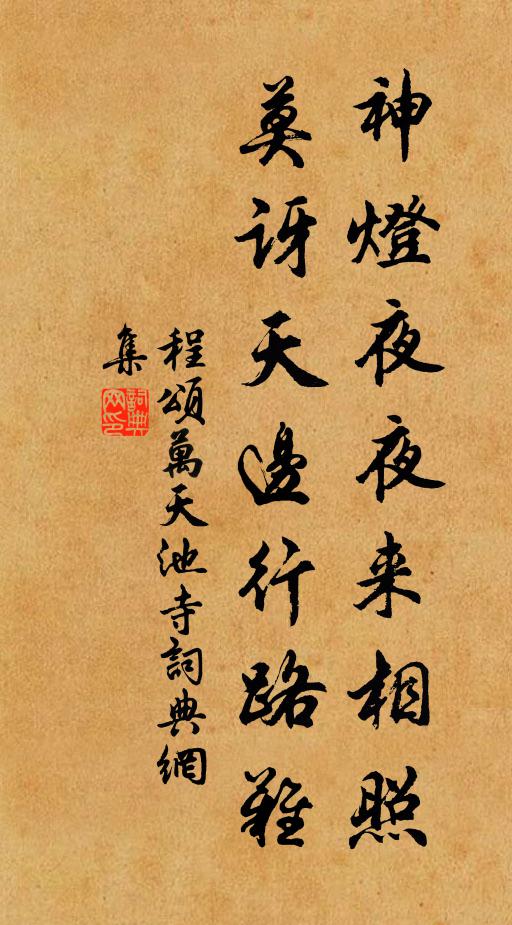 神燈夜夜来相照
莫訝天邊行路難
程頌萬天池寺詞典網
集
詞典網印